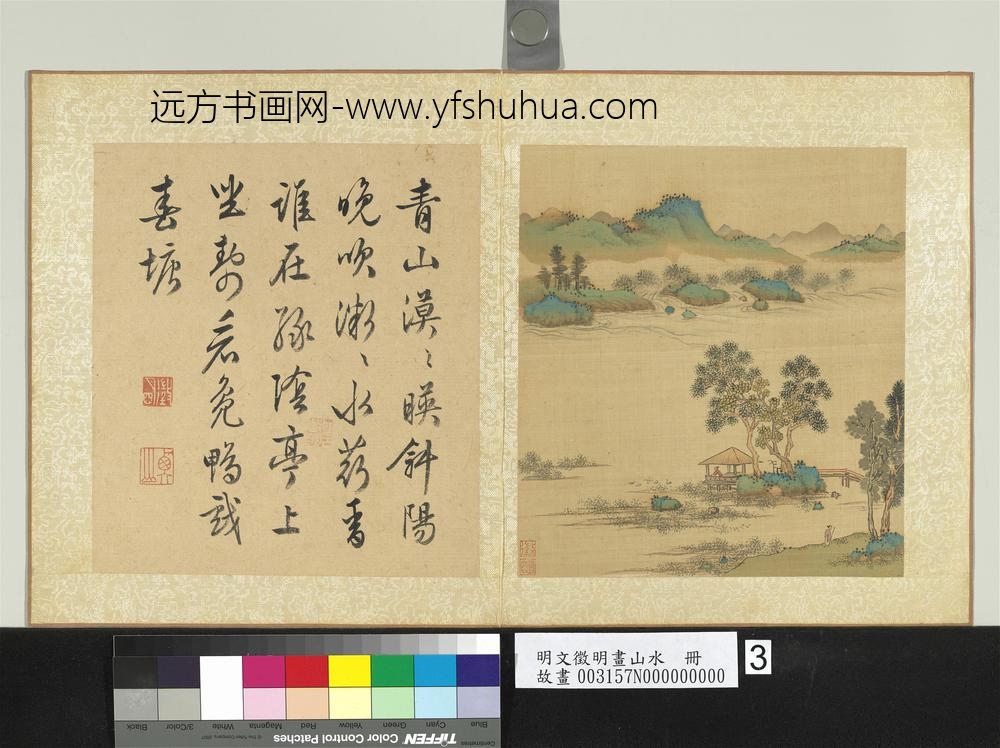 远方书画网-www.yfshuhua.com
青山漠〻暎斜陽
晚吹〻水香
誰在綠陰亭上
坐靜看鳧鴨戲
春塘
明文徵明畫山水 冊
故畫 003157N000000000
3
Blue Cyan Green Yellow Red Magenta White 3/Color Black
Centimetres TIFFEN Color Control Patches